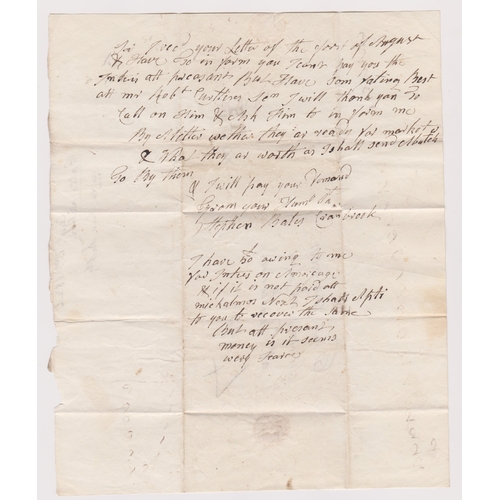 Sir I recd your Letter of the first of August
& Have To in form you I cant pay you the
Intris att preasant But Have som fating Best
att mr Robt Curtless Son I will thank you To
Call on Him & Ask Him to in form me
By A letter wether they ar ready for market
& What they ar worth as I shall send
To By them
& I will pay your Demand
From your Humb
Stephen Bates Cranbrook
I have 50 owing to me
for Intris on
& if it is not paid att
micholmos Next I shall Apli
to you to recover the Same
But att preasant
money is it seems
very scarce